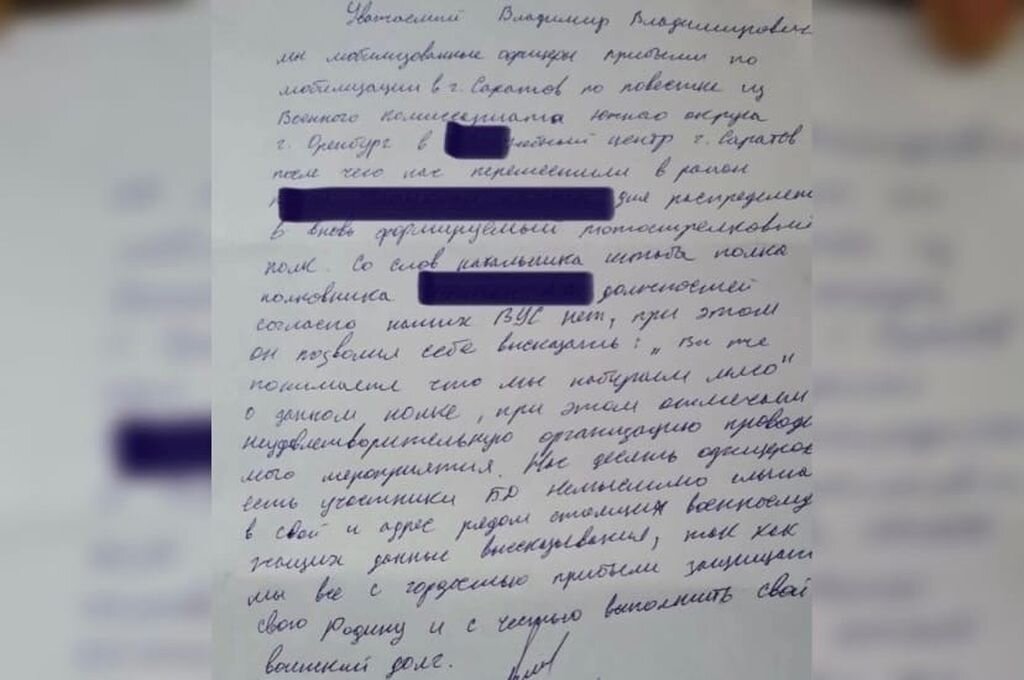 Уважаемый Владимир Владимирович
мы мобилизованные офицеры прибыли по
мобилизации в г. Саратов по повестке из
Военного комиссариата южного округа
г. Оренбург в учебный центр г. Саратов
после чего нас переместили в район
для распределен
в вновь формируемый мотострелковый
полк. Со слов начальника штаба полка
полковника должностей
согласно наших ВУС нет, при этом
он позволил себе высказать: „Вы же
понимаете что мы набираем мясо"
о данном полке, при этом отмечаем
неудовлетворительную организацию проводи
мого мероприятия. Нас десять офицеров
есть участники БД немыслимо слышать
в свой и адрес рядом стоящих военнослу
жащих данные высказывания, так как
мы все с гордостью прибыли защищать
свою Родину и с честью выполнить свой
воинский долг.